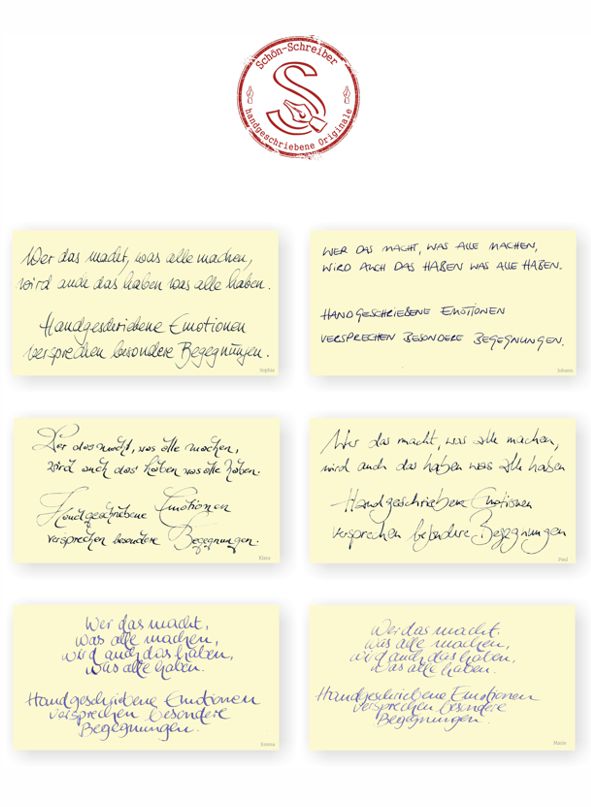 Schön-Schreiber
S
handgeschriebene Originale
Wer das macht, was alle machen,
wird auch das haben was alle haben.
Handgeschriebene Emotionen
versprechen besondere Begegnungen.
Sophia
WER DAS MACHT, WAS ALLE MACHEN,
WIRD AUCH DAS HABEN WAS ALLE HABEN.
HANDGESCHRIEBENE EMOTIONEN
VERSPRECHEN BESONDERE BEGEGNUNGEN.
Johann
Wer das macht, was alle machen,
wird auch das haben was alle haben.
Handgeschriebene Emotionen
versprechen besondere Begegnungen.
Klara
Wer das macht, was alle machen,
wird auch das haben was alle haben
Handgeschriebene Emotionen
versprechen besondere Begegnungen
Paul
Wer das macht,
was alle machen,
wird auch das haben,
was alle haben.
Handgeschriebene Emotionen
versprechen besondere
Begegnungen.
Emma
Wer das macht.
was alle machen,
wird auch das haben,
was alle haben.
Handgeschriebene Emotionen
versprechen besondere
Begegnungen.
Marie